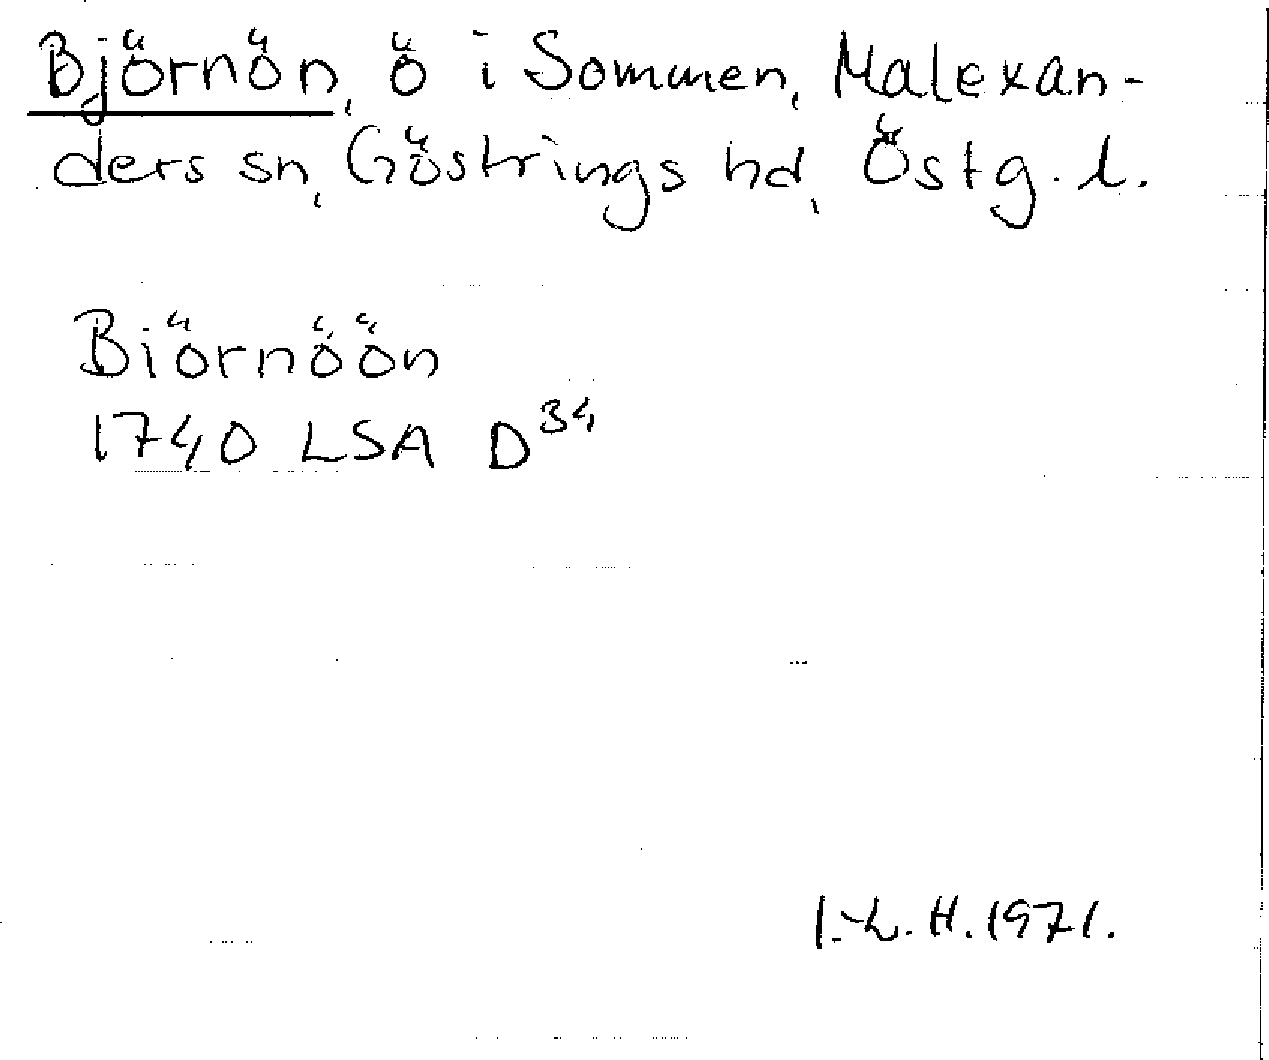 Björnön, ö i Sommen, Malexan-
ders sn, Göstrings hd, Östg. l.
Biörnöön
1740 LSA D³⁴
I.-L. H. 1971.